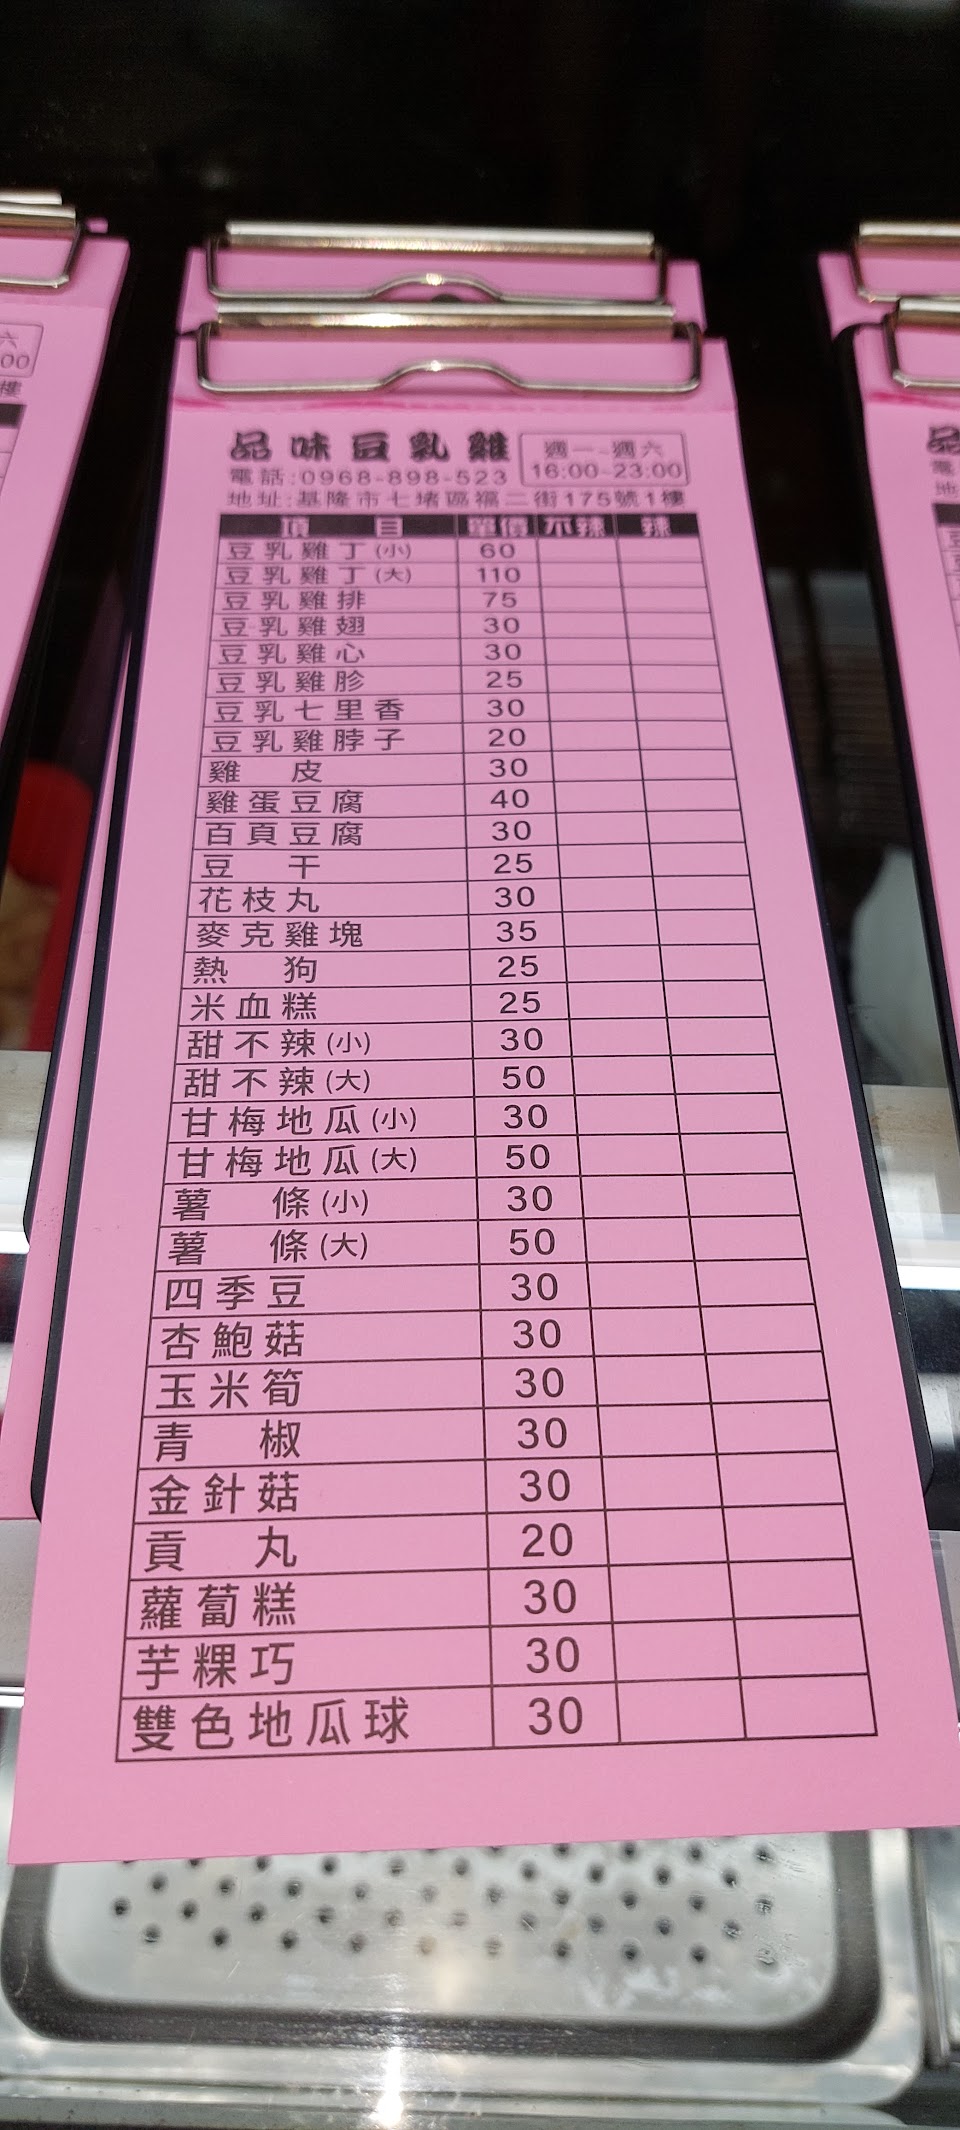 品味豆乳雞
週一~週六
16:00~23:00
電話:0968-898-523
地址:基隆市七堵區福二街175號1樓
項目 單價 不辣 辣
豆乳雞丁(小) 60
豆乳雞丁(大) 110
豆乳雞排 75
豆乳雞翅 30
豆乳雞心 30
豆乳雞胗 25
豆乳七里香 30
豆乳雞脖子 20
雞皮 30
雞蛋豆腐 40
百頁豆腐 30
豆干 25
花枝丸 30
麥克雞塊 35
熱狗 25
米血糕 25
甜不辣(小) 30
甜不辣(大) 50
甘梅地瓜(小) 30
甘梅地瓜(大) 50
薯條(小) 30
薯條(大) 50
四季豆 30
杏鮑菇 30
玉米筍 30
青椒 30
金針菇 30
貢丸 20
蘿蔔糕 30
芋粿巧 30
雙色地瓜球 30